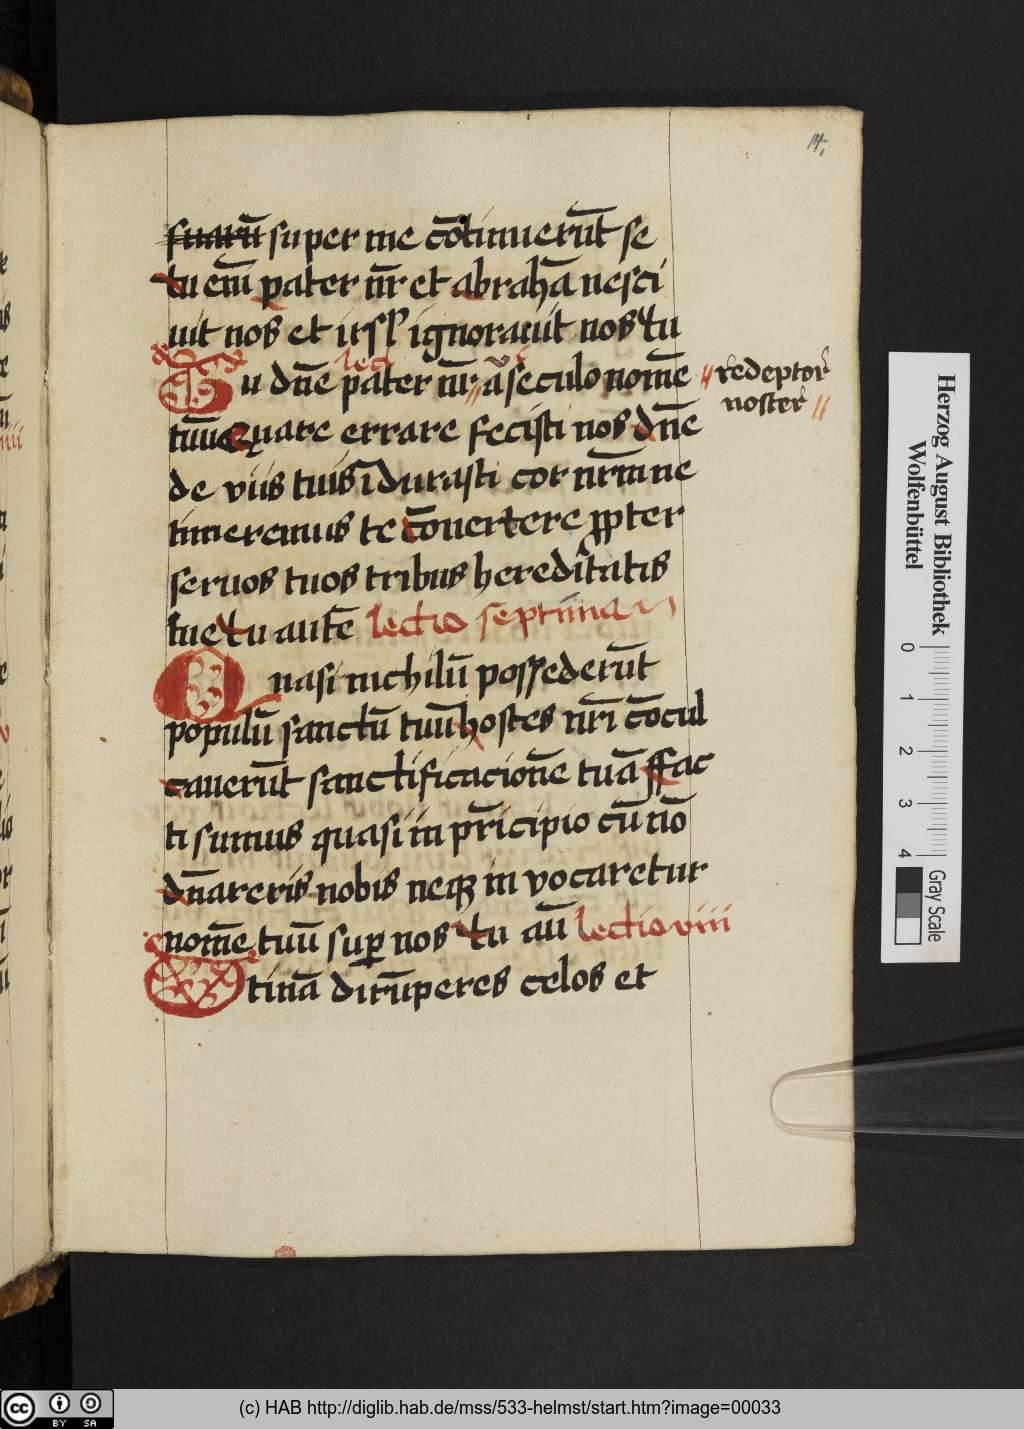 suarū super me cōtinuerūt se
tu em̄ pater nr̄ et abrahā nesci
uit nos et irsl' ignorauit nos tu
lectı vi
Tu dn̄e pater nr̄ a seculo nomē
redeptor
noster
tuū Quare errare fecisti nos dn̄e
de viis tuis īdurasti cor nrm̄ ne
timeremus te cōuertere ꝓpter
seruos tuos tribus hereditatis
tue tu autē lectio septima
Quasi nichilū possederūt
populū sanctū tuū hostes nrī cōcul
cauerūt sanctificacionē tuā ffac
ti sumus quasi in prīcipio cū nō
dn̄areris nobis neqꝫ in vocaretur
nomē tuū suꝑ nos tu aū lectio viii
Utinā dirūperes celos et
Herzog August Bibliothek
Wolfenbüttel
0 1 2 3 4
Gray Scale
cc BY SA
(c) HAB http://diglib.hab.de/mss/533-helmst/start.htm?image=00033